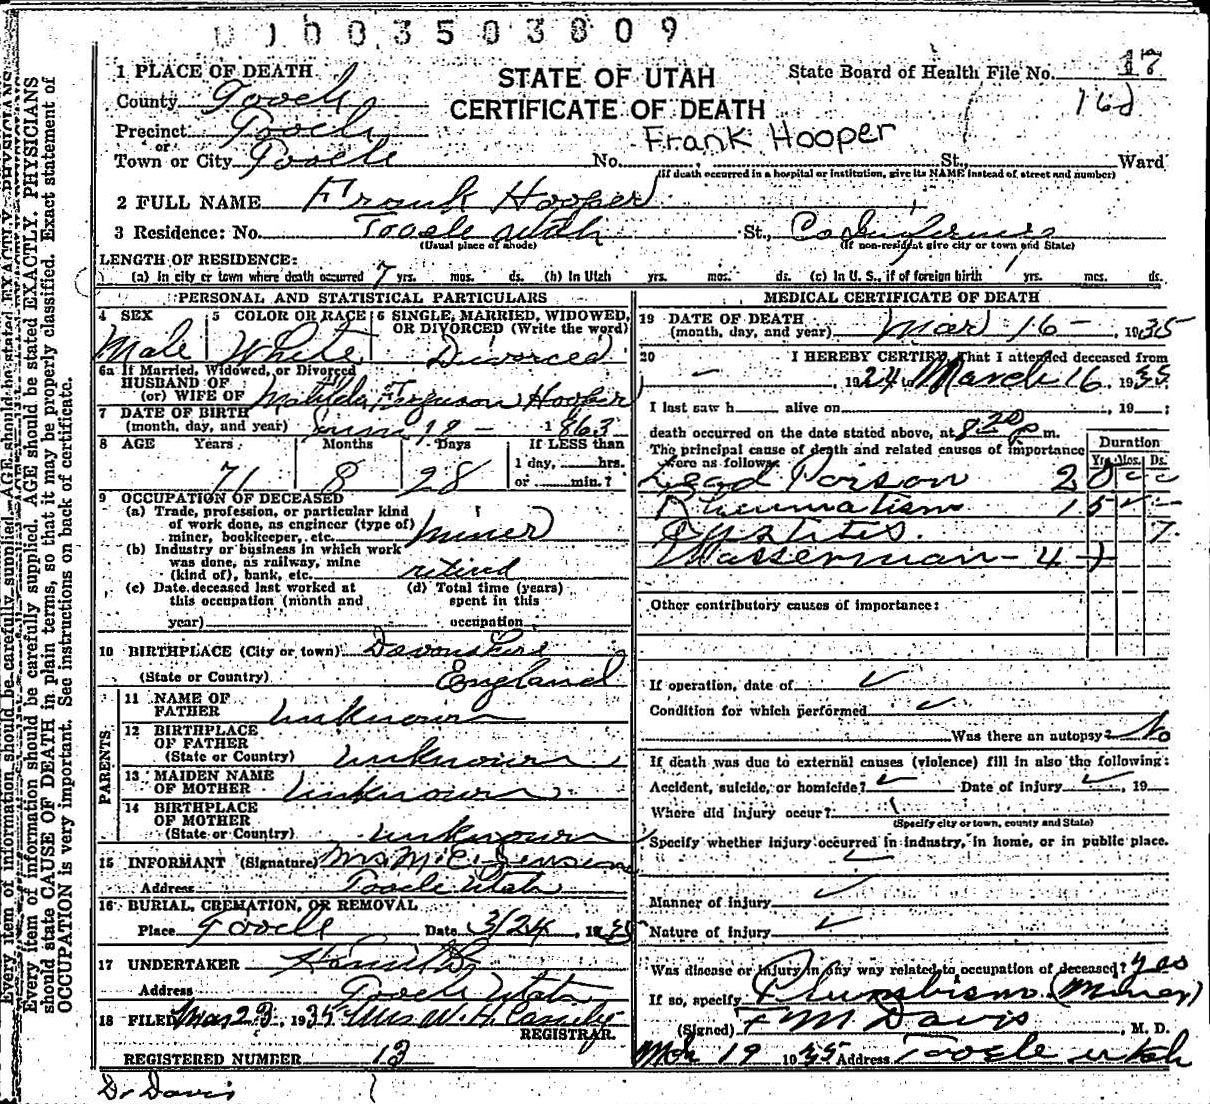 0 0 0 3 5 0 3 8 0 9
STATE OF UTAH
CERTIFICATE OF DEATH
State Board of Health File No. 17
162
1 PLACE OF DEATH
County Tooele
Precinct Tooele
or
Town or City Tooele No. Frank Hooper St., Ward
(If death occurred in a hospital or institution, give its NAME instead of street and number)
2 FULL NAME Frank Hooper
3 Residence: No. Tooele Utah St.,
(Usual place of abode) (If non-resident give city or town and State)
LENGTH OF RESIDENCE:
(a) In city or town where death occurred 7 yrs. mos. ds. (b) In Utah yrs. mos. ds. (c) In U. S., if of foreign birth yrs. mos. ds.
PERSONAL AND STATISTICAL PARTICULARS
4 SEX 5 COLOR OR RACE 6 SINGLE, MARRIED, WIDOWED, OR DIVORCED (Write the word)
Male White Divorced
6a If Married, Widowed, or Divorced
HUSBAND OF
(or) WIFE OF Matilda Ferguson Hooper
7 DATE OF BIRTH
(month, day, and year) June 18 - 1863
8 AGE Years Months Days If LESS than
71 8 28 1 day, hrs.
or min.?
9 OCCUPATION OF DECEASED
(a) Trade, profession, or particular kind
of work done, as engineer (type of)
miner, bookkeeper, etc. Miner
(b) Industry or business in which work
was done, as railway, mine
(kind of), bank, etc. retired
(c) Date deceased last worked at
this occupation (month and
year)
(d) Total time (years)
spent in this
occupation
10 BIRTHPLACE (City or town) Devonshire
(State or Country) England
PARENTS
11 NAME OF
FATHER Unknown
12 BIRTHPLACE
OF FATHER
(State or Country) Unknown
13 MAIDEN NAME
OF MOTHER Unknown
14 BIRTHPLACE
OF MOTHER
(State or Country) Unknown
15 INFORMANT (Signature) Mrs M. E.
Address Tooele Utah
16 BURIAL, CREMATION, OR REMOVAL
Place Tooele Date 3/24, 1935
17 UNDERTAKER
Address Tooele Utah
18 FILED Mar 23, 1935 Mrs W. H. Cassity
REGISTRAR.
REGISTERED NUMBER 13
Dr Davis
MEDICAL CERTIFICATE OF DEATH
19 DATE OF DEATH
(month, day, and year) Mar 16 - 1935
20 I HEREBY CERTIFY, That I attended deceased from
- , 1924 to March 16, 1935
I last saw h alive on , 19 ;
death occurred on the date stated above, at 8 20 p m.
The principal cause of death and related causes of importance
were as follows:
Duration
Yrs. Mos. Ds.
Lead Poison 20
Rheumatism 15
7
Wasserman - 4 +
Other contributory causes of importance:
If operation, date of ✓
Condition for which performed ✓
Was there an autopsy? No
If death was due to external causes (violence) fill in also the following:
Accident, suicide, or homicide? ✓ Date of injury ✓, 19
Where did injury occur?
(Specify city or town, county and State)
Specify whether injury occurred in industry, in home, or in public place.
✓
Manner of injury ✓
Nature of injury ✓
Was disease or injury in any way related to occupation of deceased? yes
If so, specify Plumbism (Miner)
(Signed) F M Davis, M. D.
Mch 19 1935 Address Tooele Utah
Every item of information should be carefully supplied. AGE should be stated EXACTLY. PHYSICIANS
should state CAUSE OF DEATH in plain terms, so that it may be properly classified. Exact statement of
OCCUPATION is very important. See instructions on back of certificate.